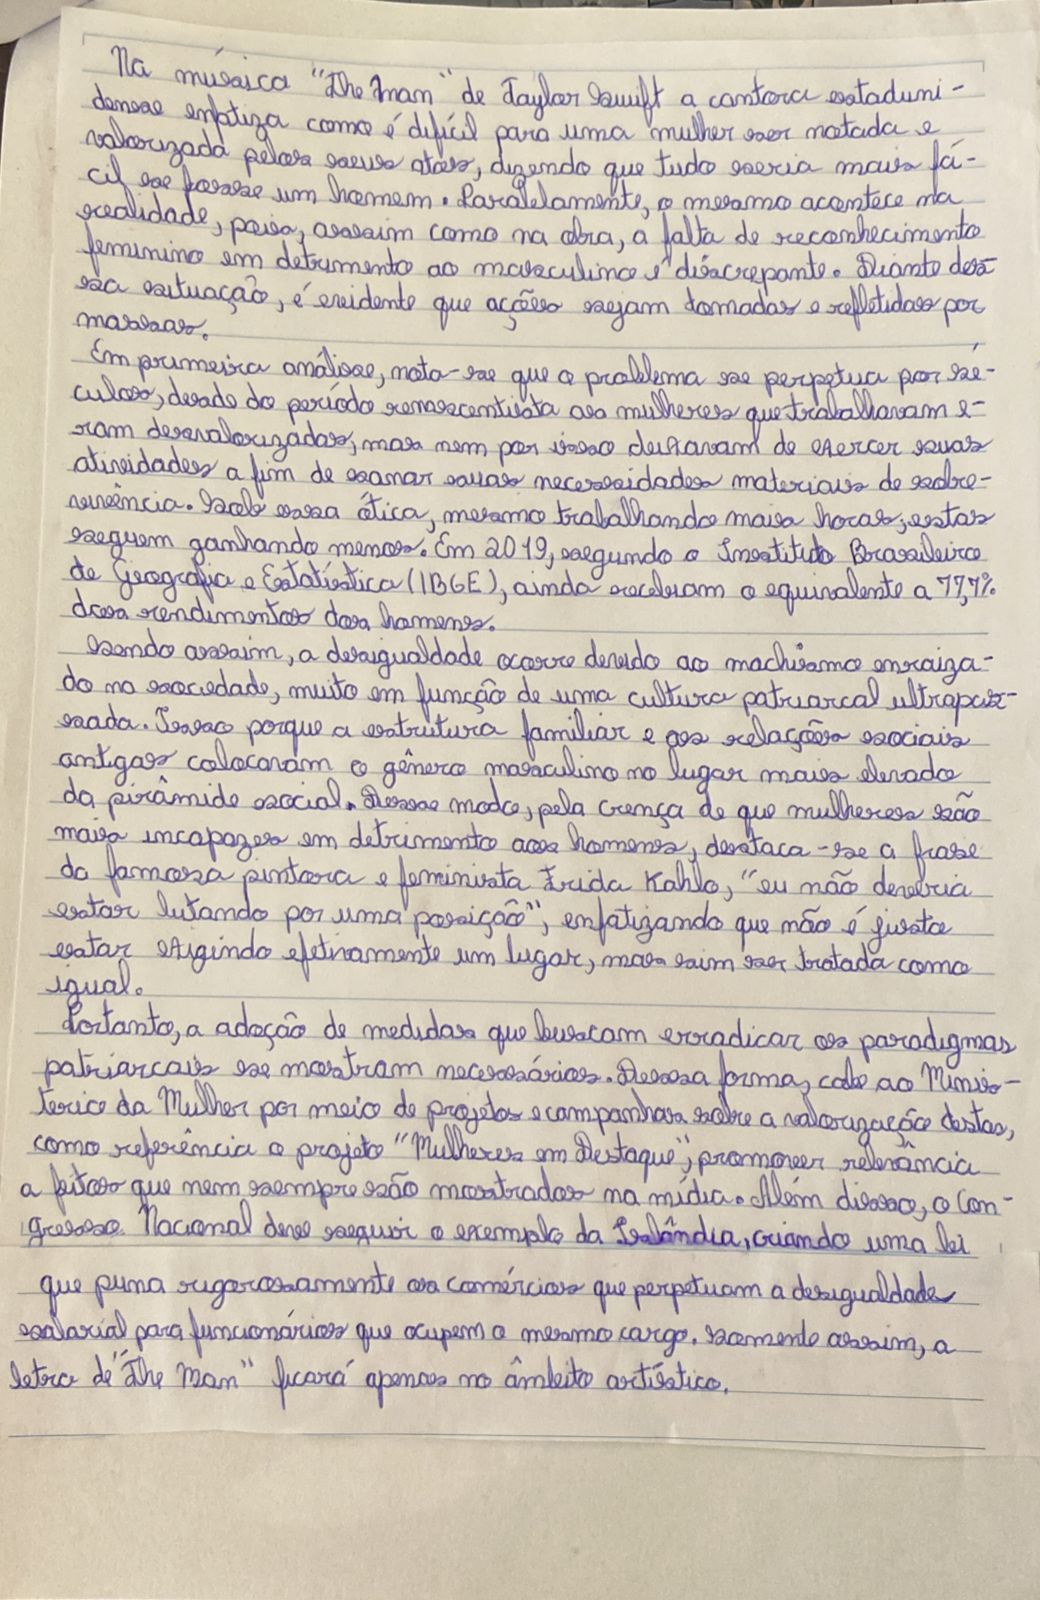 Na música "The Man" de Taylor Swift a cantora estaduni-
dense enfatiza como é difícil para uma mulher ser notada e
valorizada pelos seus atos, dizendo que tudo seria mais fá-
cil se fosse um homem. Paralelamente, o mesmo acontece na
realidade, pois, assim como na obra, a falta de reconhecimento
feminino em detrimento ao masculino é discrepante. Diante des-
sa situação, é evidente que ações sejam tomadas e refletidas por
massas.
Em primeira análise, nota-se que o problema se perpetua por sé-
culos, desde do período renascentista as mulheres que trabalhavam e-
ram desvalorizadas, mas nem por isso deixavam de exercer suas
atividades a fim de sanar suas necessidades materiais de sobre-
vivência. Sob essa ótica, mesmo trabalhando mais horas, estas
seguem ganhando menos. Em 2019, segundo o Instituto Brasileiro
de Geografia e Estatística (IBGE), ainda receberam o equivalente a 77,7%
dos rendimentos dos homens.
Sendo assim, a desigualdade ocorre devido ao machismo enraiza-
do na sociedade, muito em função de uma cultura patriarcal ultrapas-
sada. Isso porque a estrutura familiar e as relações sociais
antigas colocaram o gênero masculino no lugar mais elevado
da pirâmide social. Desse modo, pela crença de que mulheres são
mais incapazes em detrimento aos homens, destaca-se a frase
da famosa pintora e feminista Frida Kahlo, "eu não deveria
estar lutando por uma posição", enfatizando que não é justo
estar exigindo efetivamente um lugar, mas sim ser tratada como
igual.
Portanto, a adoção de medidas que buscam erradicar os paradigmas
patriarcais se mostram necessários. Dessa forma, cabe ao Minis-
terio da Mulher por meio de projetos e campanhas sobre a valorização destas,
como referência o projeto "Mulheres em Destaque", promover relevância
a feitos que nem sempre são mostrados na mídia. Além disso, o Con-
gresso Nacional deve seguir o exemplo da Islândia, criando uma lei
que puna rigorosamente os comércios que perpetuam a desigualdade
salarial para funcionários que ocupem o mesmo cargo. Somente assim, a
letra de "The Man" ficará apenas no âmbito artístico.